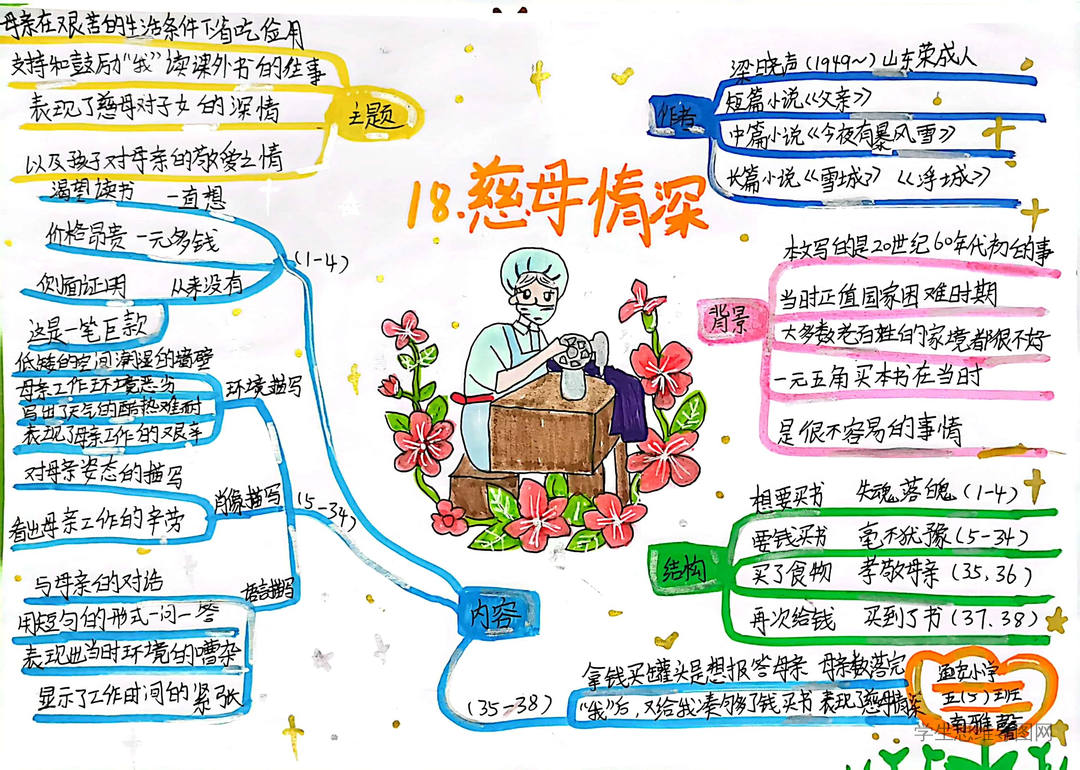 18.慈母情深
主题
母亲在艰苦的生活条件下省吃俭用
支持和鼓励"我"读课外书的往事
表现了慈母对子女的深情
以及孩子对母亲的敬爱之情
作者
梁晓声(1949~)山东荣成人
短篇小说《父亲》
中篇小说《今夜有暴风雪》
长篇小说《雪城》 《浮城》
背景
本文写的是20世纪60年代初的事
当时正值国家困难时期
大多数老百姓的家境都很不好
一元五角买本书在当时
是很不容易的事情
结构
想要买书 失魂落魄(1-4)
要钱买书 毫不犹豫(5-34)
买了食物 孝敬母亲(35,36)
再次给钱 买到了书(37.38)
内容
(1-4)
渴望读书 一直想
价格昂贵 一元多钱
侧面证明 从来没有
这是一笔巨款
(5-34)
环境描写
低矮的空间潮湿的墙壁
母亲工作环境恶劣
写出了天气的酷热难耐
表现了母亲工作的艰辛
肖像描写
对母亲姿态的描写
看出母亲工作的辛劳
语言描写
与母亲的对话
用短句的形式一问一答
表现出当时环境的嘈杂
显示了工作时间的紧张
(35-38)
拿钱买罐头是想报答母亲 母亲数落完
"我"后,又给我凑够了钱买书 表现了慈母情深
通安小学
五(5)班
南雅馨
学生思维导图网